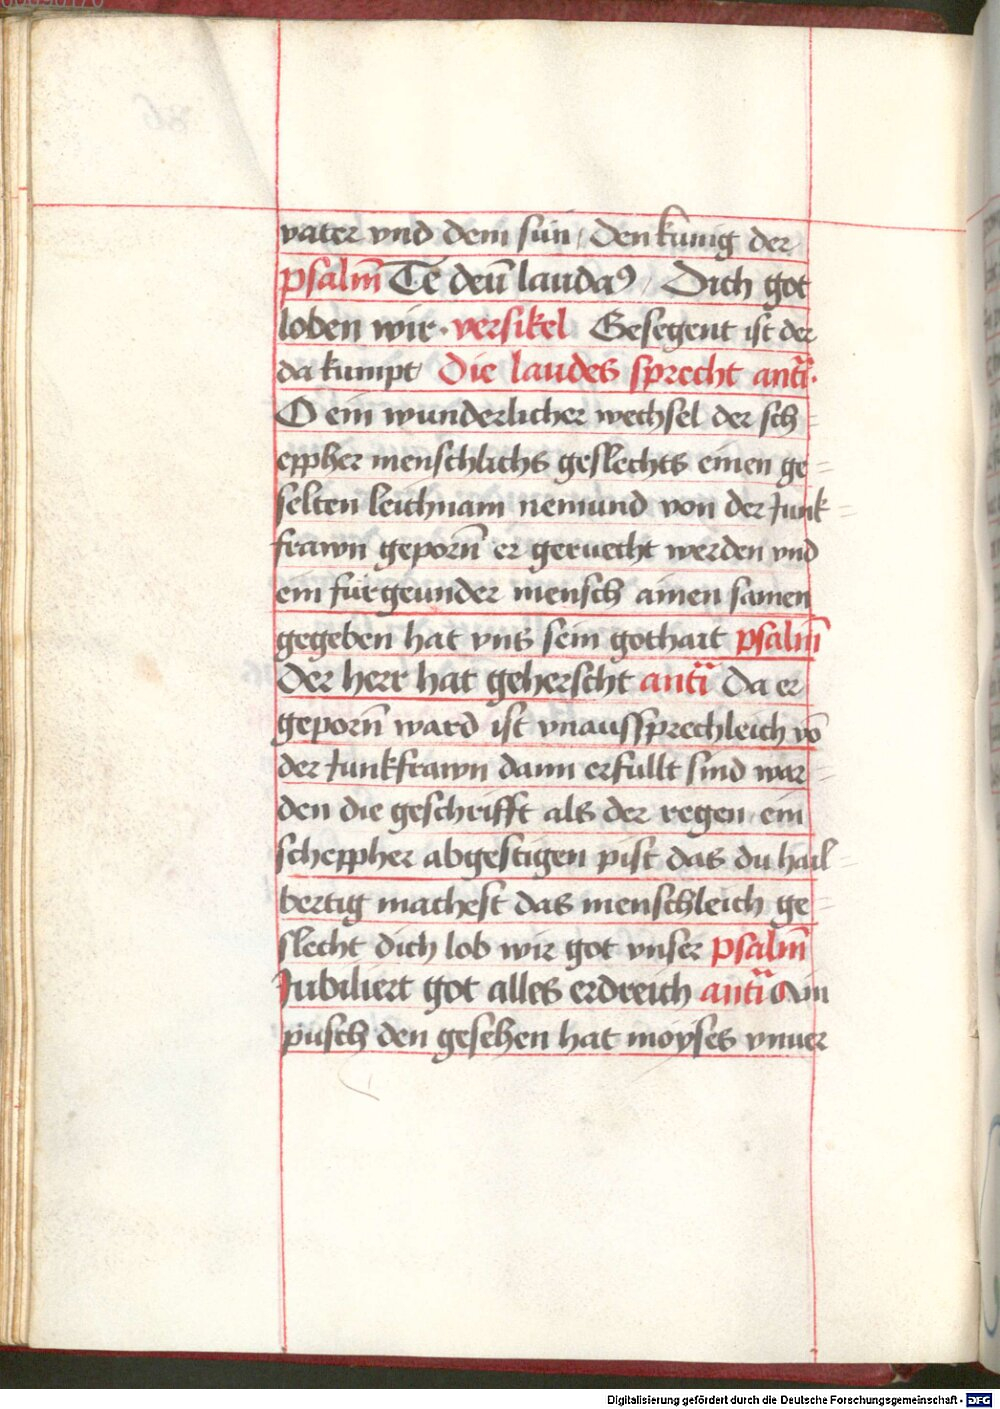 vater vnd dem sun / den kunig der
psalm̄ Te deū laudaꝰ / Dich got
loben wir · versikel Gesegent ist der
da kumpt Die laudes sprecht antī ·
O ein wunderlicher wechsel der sch=
eppher menschlichs geslechts einen ge=
selten leichnam nemund von der Junk=
frawn geporn̄ er geruecht werden vnd
ein fürgeunder mensch ainen samen
gegeben hat vns sein gothait psalm̄
Der herr hat geherscht antī Da er
geporn̄ ward ist vnaussprechleich vō
der Junkfrawn dann erfullt sind war=
den die geschrifft als der regen ein
scheppher abgestigen pist das du hail=
bertig machest das menschleich ge=
slecht dich lob wir got vnser psalm̄
Jubiliert got alles erdreich antī Ain
pusch den gesehen hat moyses vnuer
Digitalisierung gefördert durch die Deutsche Forschungsgemeinschaft - DFG